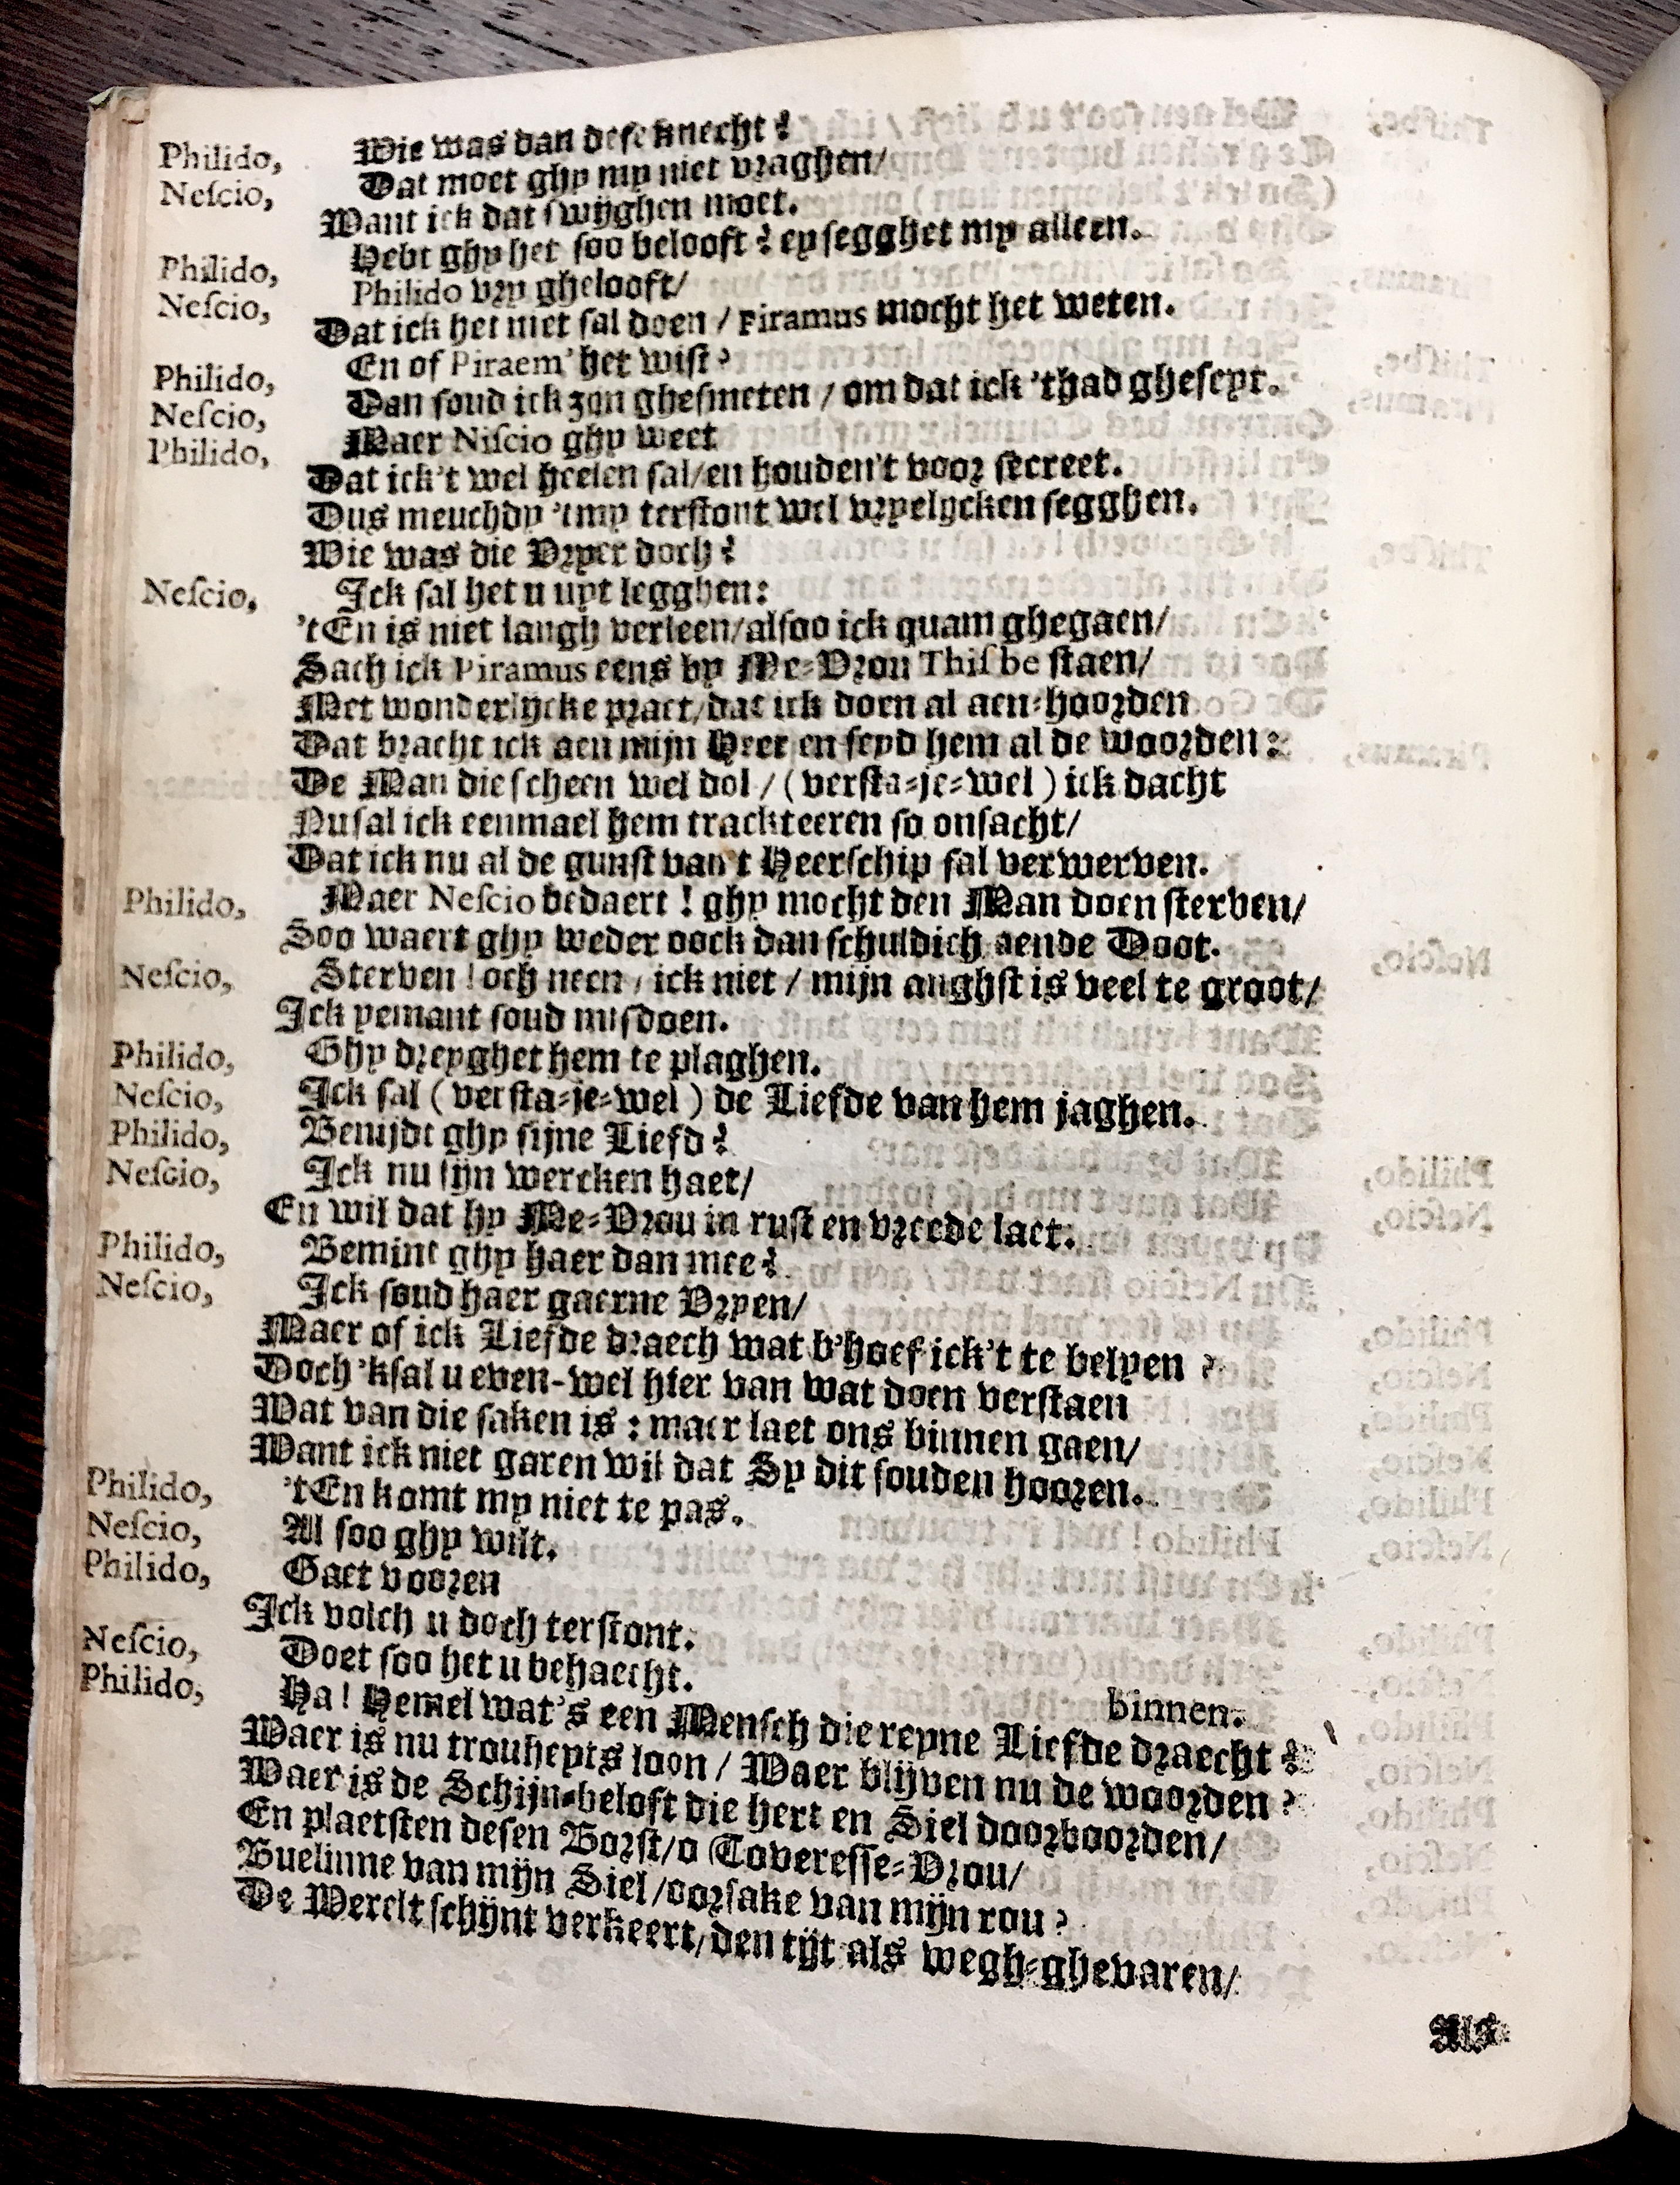 Philido, Wie was dan dese knecht?
Nescio, Dat moet ghy my niet vraghen/
Want ick dat swyghen moet.
Philido, Hebt ghy het soo belooft? ey segghet my alleen.
Nescio, Philido vry ghelooft/
Dat ick het niet sal doen / Piramus mocht het weten.
Philido, En of Piraem' het wist?
Nescio, Dan soud ick zyn ghesmeten / om dat ick 'thad gheseyt.
Philido, Maer Niscio ghy weet
Dat ick't wel heelen sal/en houden't voor secreet.
Dus meuchdy 'tmy terstont wel vryelycken segghen.
Wie was die Vryer doch?
Nescio, Ick sal het u uyt legghen:
't En is niet langh verleen/alsoo ick quam ghegaen/
Sach ick Piramus eens by Me-Vrou Thisbe staen/
Met wonderlycke praet/dat ick doen al aen-hoorden
Dat bracht ick aen mijn Heer en seyd hem al de woorden:
De Man die scheen wel dol / (versta-je-wel) ick dacht
Nu sal ick eenmael hem trackteeren so onsacht/
Dat ick nu al de gunst van't Heerschip sal verwerven.
Philido, Maer Nescio bedaert! ghy mocht den Man doen sterven/
Soo waert ghy weder oock dan schuldich aende Doot.
Nescio, Sterven! och neen, ick niet / mijn anghst is veel te groot/
Ick yemant soud misdoen.
Philido, Ghy dreyghet hem te plaghen.
Nescio, Ick sal (versta-je-wel) de Liefde van hem jaghen.
Philido, Benijdt ghy sijne Liefd?
Nescio, Ick nu sijn wercken haet/
En wil dat hy Me-Vrou in rust en vreede laet.
Philido, Bemint ghy haer dan mee?
Nescio, Ick soud haer gaerne Vryen/
Maer of ick Liefde draech wat b'hoef ick't te belyen?
Doch 'ksal u even-wel hier van wat doen verstaen
Wat van die saken is: maer laet ons binnen gaen/
Want ick niet garen wil dat Sy dit souden hooren.
Philido, 't En komt my niet te pas.
Nescio, Al soo ghy wilt.
Philido, Gaet vooren
Ick volch u doch terstont.
Nescio, Doet soo het u behaecht.
binnen.
Philido, Ha! Hemel wat's een Mensch die reyne Liefde draecht?
Waer is nu trouheyts loon / Waer blijven nu de woorden?
Waer is de Schijn-beloft die hert en Siel doorboorden/
En plaetsten desen Borst/o Toveresse-Vrou/
Buelinne van mijn Siel/oorsake van mijn rou?
De Werelt schynt verkeert/den tijt als wegh-ghevaren/
Als